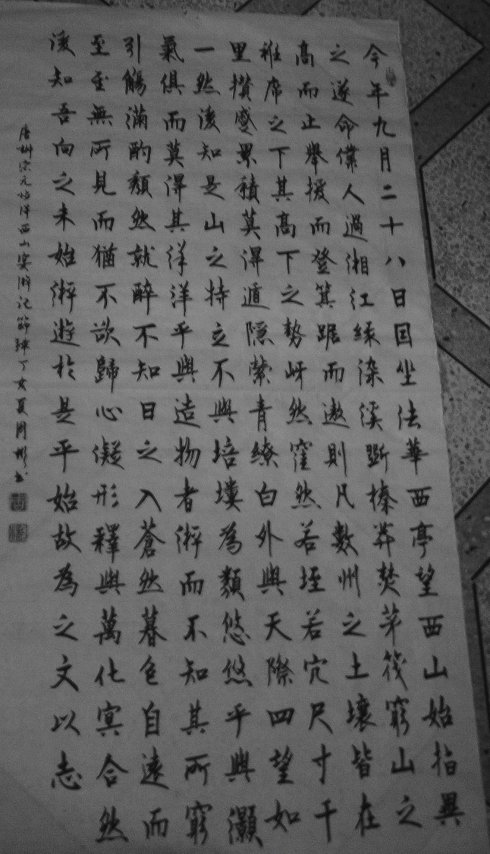 今年九月二十八日因坐法華西亭望西山始指異
之遂命僕人過湘江緣染溪斲榛莽焚茅筏窮山之
高而止攀援而登箕踞而遨則凡數州之土壤皆在
袵席之下其高下之勢岈然窪然若垤若穴尺寸千
里攢蹙累積莫淂遁隱縈青繚白外與天際四望如
一然後知是山之持立不與培塿為類悠悠乎與灝
氣俱而莫淂其洋洋乎與造物者游而不知其所窮
引觴滿酌頹然就醉不知日之入蒼然暮色自遠而
至至無所見而猶不欲歸心凝形釋與萬化冥合然
後知吾向之未始游遊於是乎始故為之文以志
唐柳宗元始淂西山宴游記節錄丁亥夏周彬書